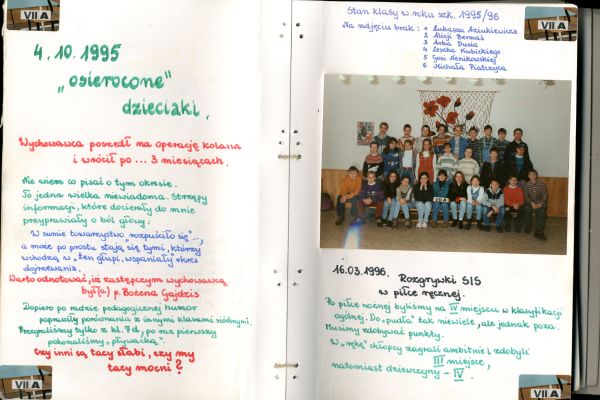 VII A
4.10.1995
„osierocone"
dzieciaki.
Wychowawca poszedł na operację kolana
i wrócił po ... 3 miesiącach.
Nie wiem co pisać o tym okresie.
To jedna wielka niewiadoma. Strzępy
informacji, które docierały do mnie
przyprawiały o ból głowy:
"W sumie towarzystwo „rozpuściło się"...,
a może po prostu stają się tymi, którzy
wchodzą w „ten głupi, wspaniały" okres
dojrzewania.
Warto odnotować, iż zastępczym wychowawcą
był(a) p. Bożena Gajdzis
Dopiero po radzie pedagogicznej humor
poprawiły porównania z innymi klasami siódmymi.
Przegraliśmy tylko z kl. 7d, po raz pierwszy
pokonaliśmy „pływaków".
Czy inni są tacy słabi, czy my
tacy mocni?
VII A
Stan klasy w roku szk. 1995/96
Na zdjęciu brak: 1 Łukasza
2 Alicji
3 Arka Dusia
4 Leszka Kubickiego
5 Gosi
6 Michała
VII A
VII A
16.03.1996. Rozgrywki SIS
w piłce ręcznej.
Po piłce nożnej byliśmy na IV miejscu w klasyfikacji
ogólnej. Do „pudła" tak niewiele, ale jednak poza.
Musimy zdobywać punkty.
W „rękę" chłopcy zagrali ambitnie i zdobyli
III miejsce,
natomiast dziewczyny – IV.
VII A